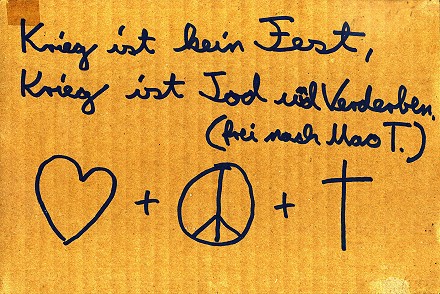 Krieg ist kein Fest,
Krieg ist Tod und Verderben.
(frei nach Mao T.)
+ +